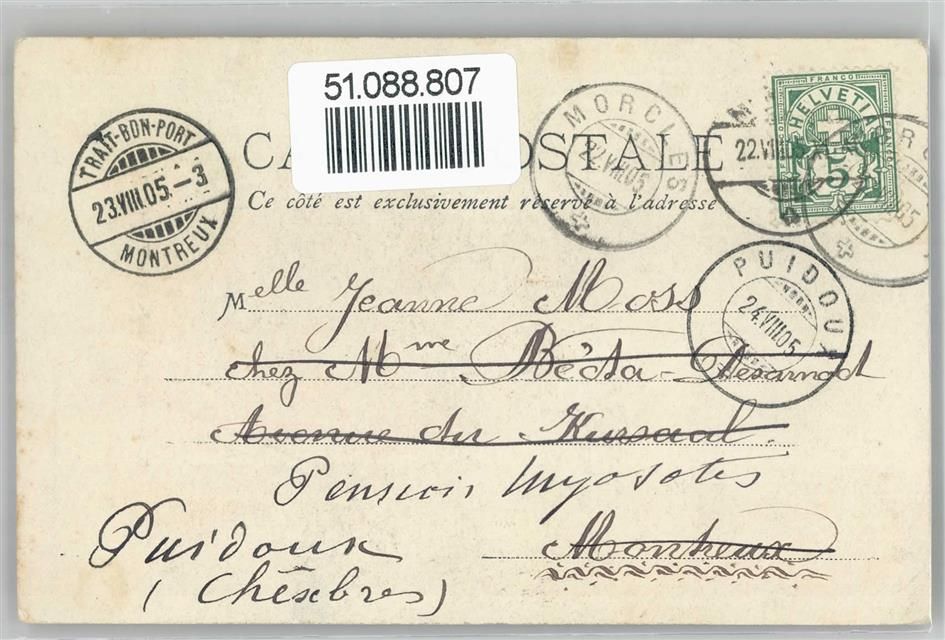 51.088.807
FRANCO
HELVETIA
5
MORCLES
22.VIII.05
22.VIII
TRAIT-BON-PORT
23.VIII.05.-3
MONTREUX
CA OSTALE
Ce côté est exclusivement réservé à l'adresse
PUIDOUX
24.VIII.05
Melle Jeanne Moss
chez Mme
Avenue du Kursaal.
Pension Myosotis
Puidoux
Montreux
(Chexbres)